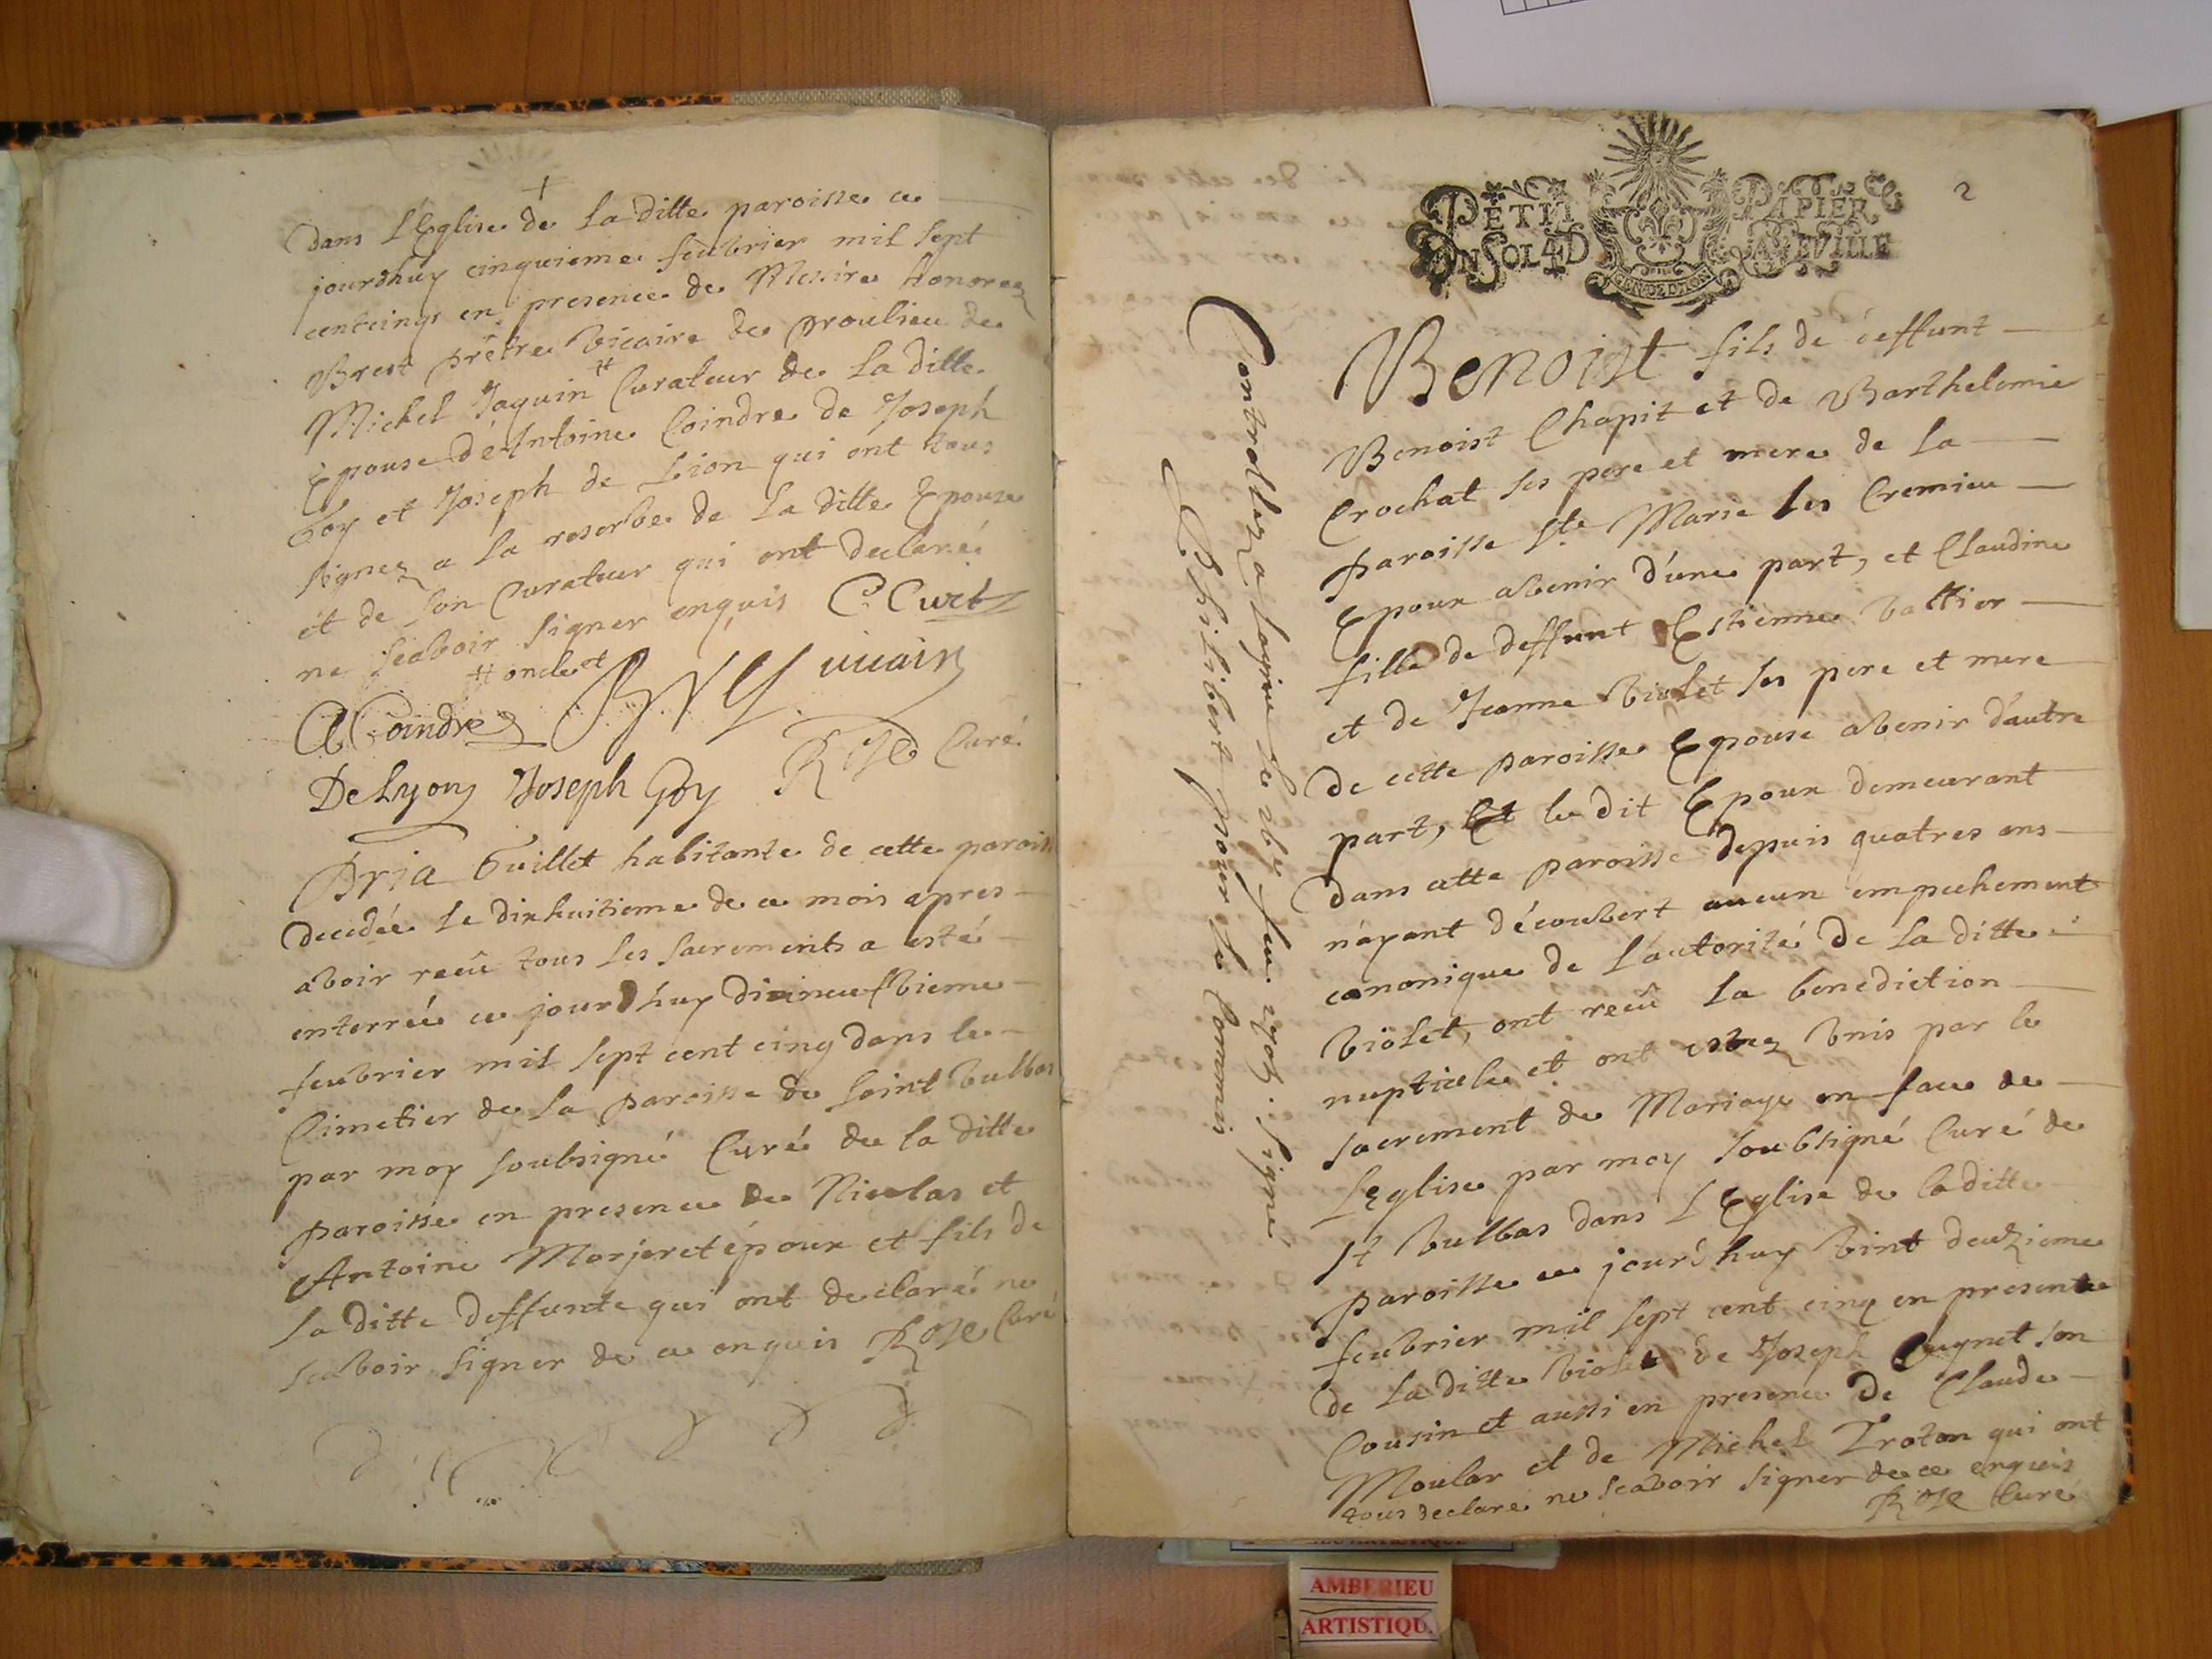 dans L'Eglise de La ditte paroisse ce
jourdhuy cinquieme feubrier mil sept
centcinqs en presence de Messire honorez
Brest prêtre vicaire de proulieu de
Michel Jaquin # Curateur de La ditte
Epouse d'Antoine Coindre de Joseph
Goy et Joseph de Lion qui ont tous
signez a La reserve de La ditte Epouse
et de son Curateur qui ont declaré
ne sçavoir signer enquis C. Curt
# oncle et
vicaire
A Coindre
DeLyon Joseph Goy Roze Curé
Pria Guillet habitante de cette paroiss
decedée Le dixhuitieme de ce mois apres
avoir receu tous Les sacrements a esté
enterrée ce jourdhuy dixneufvieme
feubrier mil sept cent cinq dans le
Cimetier de La paroisse de saint Vulbas
par moy soubsigné Curé de la ditte
paroisse en presence de Nicolas et
Antoine Morjeret époux et fils de
La ditte deffunte qui ont declaré ne
scavoir signer de ce enquis Roze Curé
2
PETIT PAPIER
UN SOL 4 D LA FEVILLE
GEN DE DIION
Benoist fils de deffunt
Benoist Chapit et de Barthelemie
Crochat ses pere et mere de La
paroisse Ste Marie Les Cremieu
Epoux avenir d'une part, et Claudine
fille de deffunt Estienne Vallier
et de Jeanne Violet ses pere et mere
de cette paroisse Epouse avenir d'autre
part, Et le dit Epoux demeurant
dans cette paroisse depuis quatres ans
n'ayant découvert aucun empechement
canonique de L'autorité de La ditte
Violet, ont receu La benediction
nuptiale et ont estez unis par le
sacrement de Mariage en face de
L'eglise par moy soubsigné Curé de
St Vulbas dans L'Eglise de La ditte
paroisse ce jourd'huy vint deuzieme
feubrier mil sept cent cinq en presence
de La ditte Violet de Joseph Cugnet son
Cousin et aussi en presence de Claude
Moular et de Michel Troton qui ont
tous declaré ne scavoir signer de ce enquis
Roze Curé
Controllez a Lagnieu le feu. 1705. signé
Philibert pour le Commis
AMBERIEU
ARTISTIQU